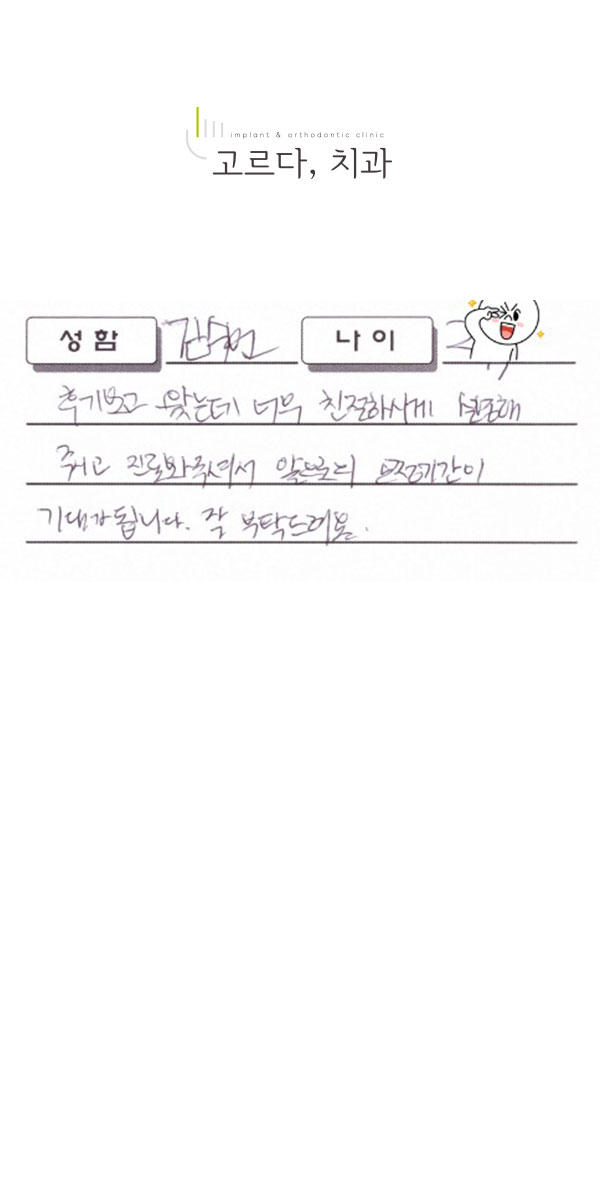 implant & orthodontic clinic
고르다, 치과
성함 나이
후기보고 왔는데 너무 친절하시게 설명해
주시고 진료봐주셔서 앞으로의 교정기간이
기대가 됩니다. 잘 부탁드려요.